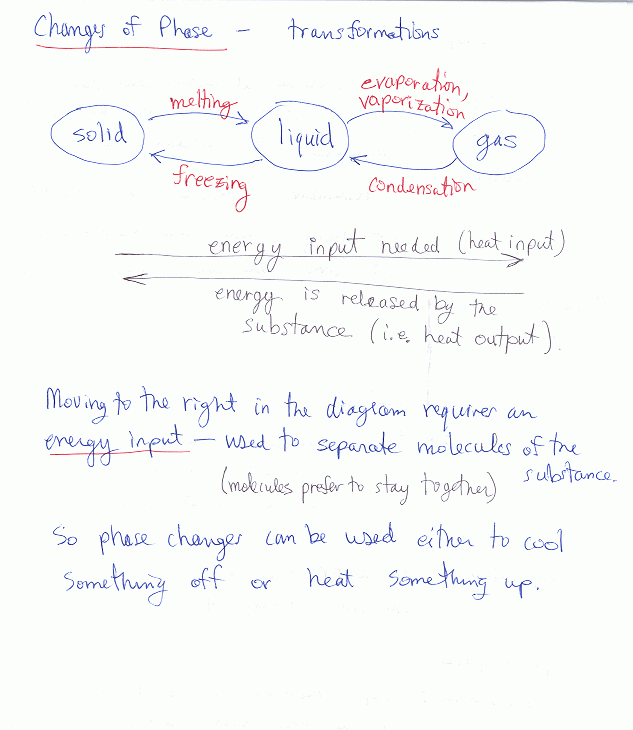 Changes of Phase - transformations
evaporation,
melting vaporization
solid liquid gas
freezing condensation
energy input needed (heat input)
energy is released by the
substance (i.e. heat output).
Moving to the right in the diagram requires an
energy input - used to separate molecules of the
substance.
(molecules prefer to stay together)
So phase changes can be used either to cool
something off or heat something up.